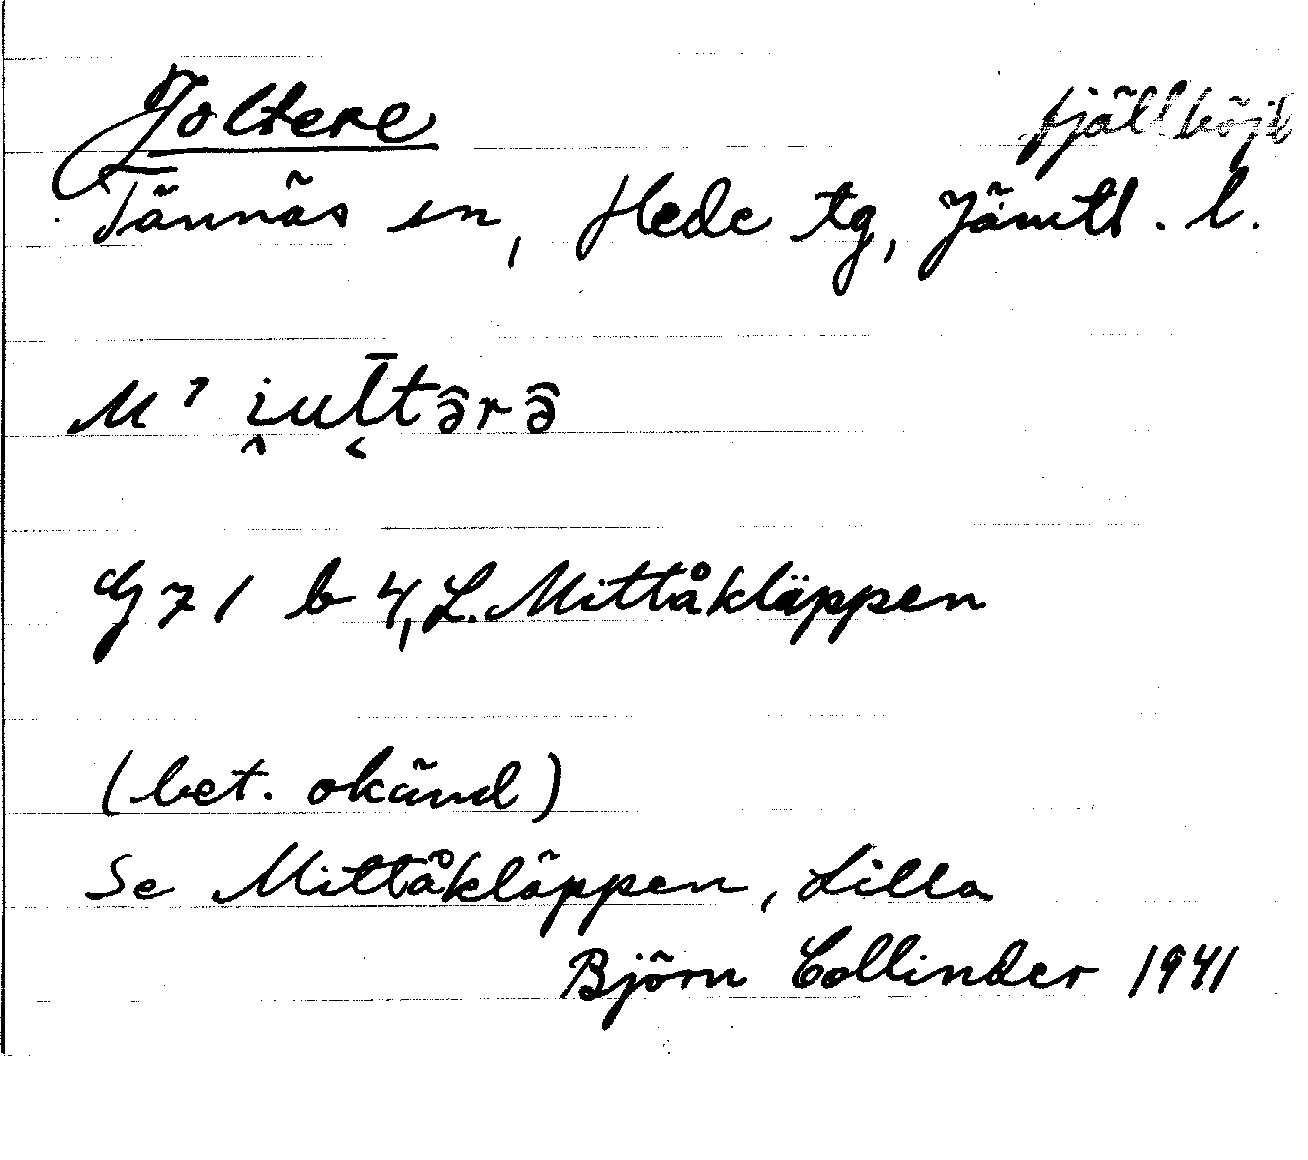 Joltere fjällhöjd
Tännäs sn, Hede tg, Jämtl. l.
M⁷ i̭ul̄tə̑rə̑
G 71 b 4, L. Mittåkläppen
(bet. okänd)
Se Mittåkläppen, Lilla
Björn Collinder 1941